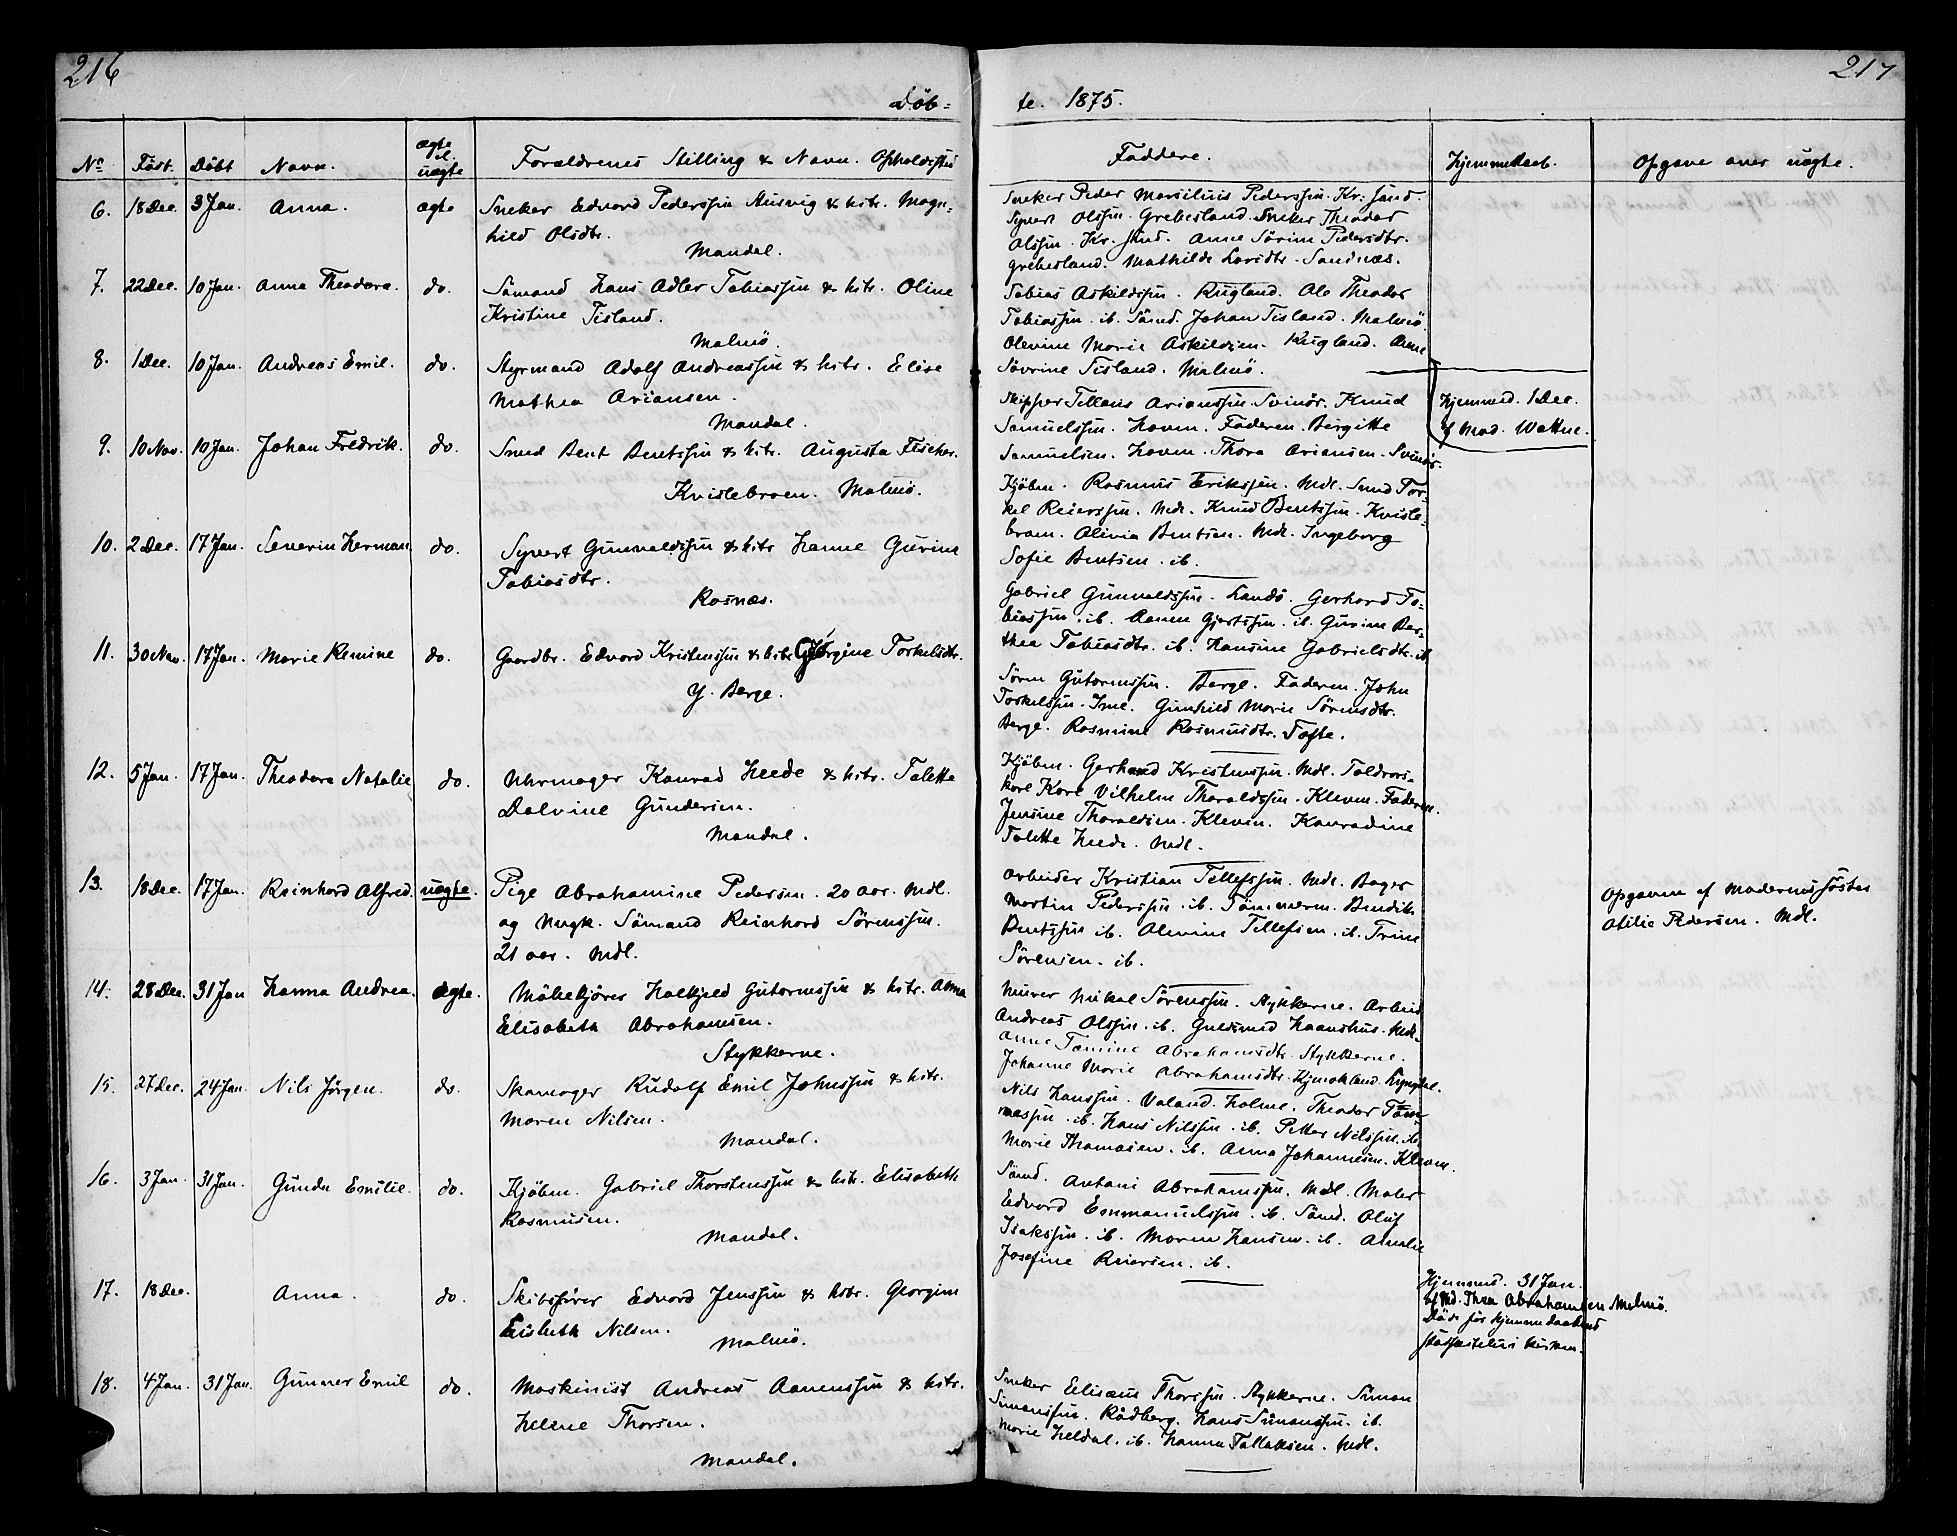 216
217
Döb-
te. 1875.
No Födt. Döbt Navn. ægte el. uægte Forældrenes Stilling & Navn. Opholdssted
Faddere. Hjemmedaab. Opgave over uægte.
6. 18 Dec. 3 Jan. Anna. ægte Sneker Edvard Pederssön & hstr. Magn-
hild Olsdtr.
Mandal.
Sneker Peder Marsilius Pederssön. Kr: sand.
Syvert Olssön. Grebesland. Sneker Theodor
Olssön. Kr. sand. Anne Sörine Pedersdtr.
Grebesland. Mathilde Larsdtr. Sandnæs.
7. 22 Dec. 10 Jan. Anna Theodora. do. Sömand Hans Adler Tobiassön & hstr. Oline
Kristine Tisland.
Malmö.
Tobias Askildssön. Rugland. Ole Theodor
Tobiassön. ib. Sömd. Johan Tisland. Malmö.
Olevine Marie Askildsen. Rugland. Anne
Sövrine Tisland. Malmö.
8. 1 Dec. 10 Jan. Andreas Emil. do. Styrmand Adolf Andreassön & hstr. Elise
Mathea Ariansen.
Mandal.
Skipper Tellaus Arianssön. Svinör. Knud
Samuelssön. Hoven. Faderen. Bergitte
Samuelsen. Hoven. Thora Ariansen. Svinör.
Hjemmed. 1 Dec.
af Mad. Wattne.
9. 10 Nov. 10 Jan. Johan Fredrik. do. Smed Bent Bentssön & hstr. Augusta Fischer.
Kvislebroen. Malmö.
Kjöbm. Rasmus Erikssen. Mdl. Smed Tor-
kel Reierssön. Mdl. Knud Bentssön. Kvisle-
broen. Olivia Bentsen. Mdl. Ingeborg
Sofie Bentsen. ib.
10. 2 Dec. 17 Jan. Severin Herman. do. Syvert Gunvaldssön & hstr Hanne Gurine
Tobiasdtr.
Rosnæs.
Gabriel Gunvaldssön. Landö. Gerhard To-
biassön. ib. Aanen Gjertssön. ib. Gurine Ber-
thea Tobiasdtr. ib. Hansine Gabrielsdtr. ib
11. 30 Nov. 17 Jan. Marie Remine do. Gaardbr. Edvard Kristenssön & hstr. Jörgine Torkelsdtr.
Y. Berge.
Sören Gutormssön. Berge. Faderen. John
Torkelssön. Ime. Gunhild Marie Sörensdtr.
Berge. Rasmine Rasmusdtr. Tofte.
12. 5 Jan. 17 Jan. Theodora Natalie do. Uhrmager Konrad Heede & hstr. Talette
Dalvine Gundersen.
Mandal.
Kjöbm. Gerhard Kristenssön. Mdl. Toldrors-
karl Karl Vilhelm Thoraldssön. Kleven. Faderen.
Jensine Thoraldsen. Kleven. Konradine
Talette Heede. Mdl.
13. 18 Dec. 17 Jan. Reinhard Alfred. uægte. Pige Abrahamine Pedersen. 20 aar. Mdl.
og Ungk. Sömand Reinhard Sörenssön.
21 aar. Mdl.
Arbeider Kristian Tellefssön. Mdl. Bager
Martin Pederssön. ib. Tömmerm. Bendik
Bentssön ib. Alevine Tellefsen. ib. Trine
Sörensen. ib.
Opgaven af Moderens Söster
Otilie Pedersen. Mdl.
14. 28 Dec. 31 Jan Hanna Andrea. ægte. Mölkjörer Halkjeld Gutormssön & hstr. Anna
Elisabeth Abrahamsen.
Stykkerne.
Murer Mikal Sörenssön. Stykkerne. Arbeid
Andreas Olssön. ib. Guldsmed Haanshus. Mdl.
Anne Tomine Abrahamsdtr. Stykkerne.
Johanne Marie Abrahamsdtr. Lyngdal.
15. 27 Dec. 24 Jan. Nils Jörgen. do. Skomager Rudolf Emil Johnssön & hstr.
Maren Nilsen.
Mandal.
Nils Hanssön. Valand. Holme. Theodor Tom-
massön. ib. Hans Nilssön. ib. Petter Nilssön. ib.
Marie Thomasen. ib. Anna Johannesen. Kleven.
16. 3 Jan. 31 Jan. Gunda Emilie. do. Kjöbm. Gabriel Thorstenssön & hstr. Elisabeth
Rasmusen.
Mandal.
Sömd. Antoni Abrahamssön. Mdl. Maler
Edvard Emmanuelssön. ib. Sömd. Oluf
Isakssön. ib. Maren Hansen. ib. Amalie
Josefine Reiersen. ib.
17. 18 Dec. Anna. do. Skibsförer Edvard Jenssön & hstr. Georgine
Elisbeth Nilsen.
Malmö.
Hjemmed. 31 Jan.
af Md. Thea Abrahamsen Malmö.
Döde för Hjemmedaabens
stadfæstelse i Kirken.
18. 4 Jan. 31 Jan. Gunner Emil do. Maskinist Andreas Aanenssön & hstr.
Helene Thorsen.
Mandal.
Sneker Elisæus Thorssön. Stykkerne. Simon
Simonssön. Rödberg. Hans Simonssön. ib.
Marie Heldal. ib. Hanna Tallaksen. Mdl.